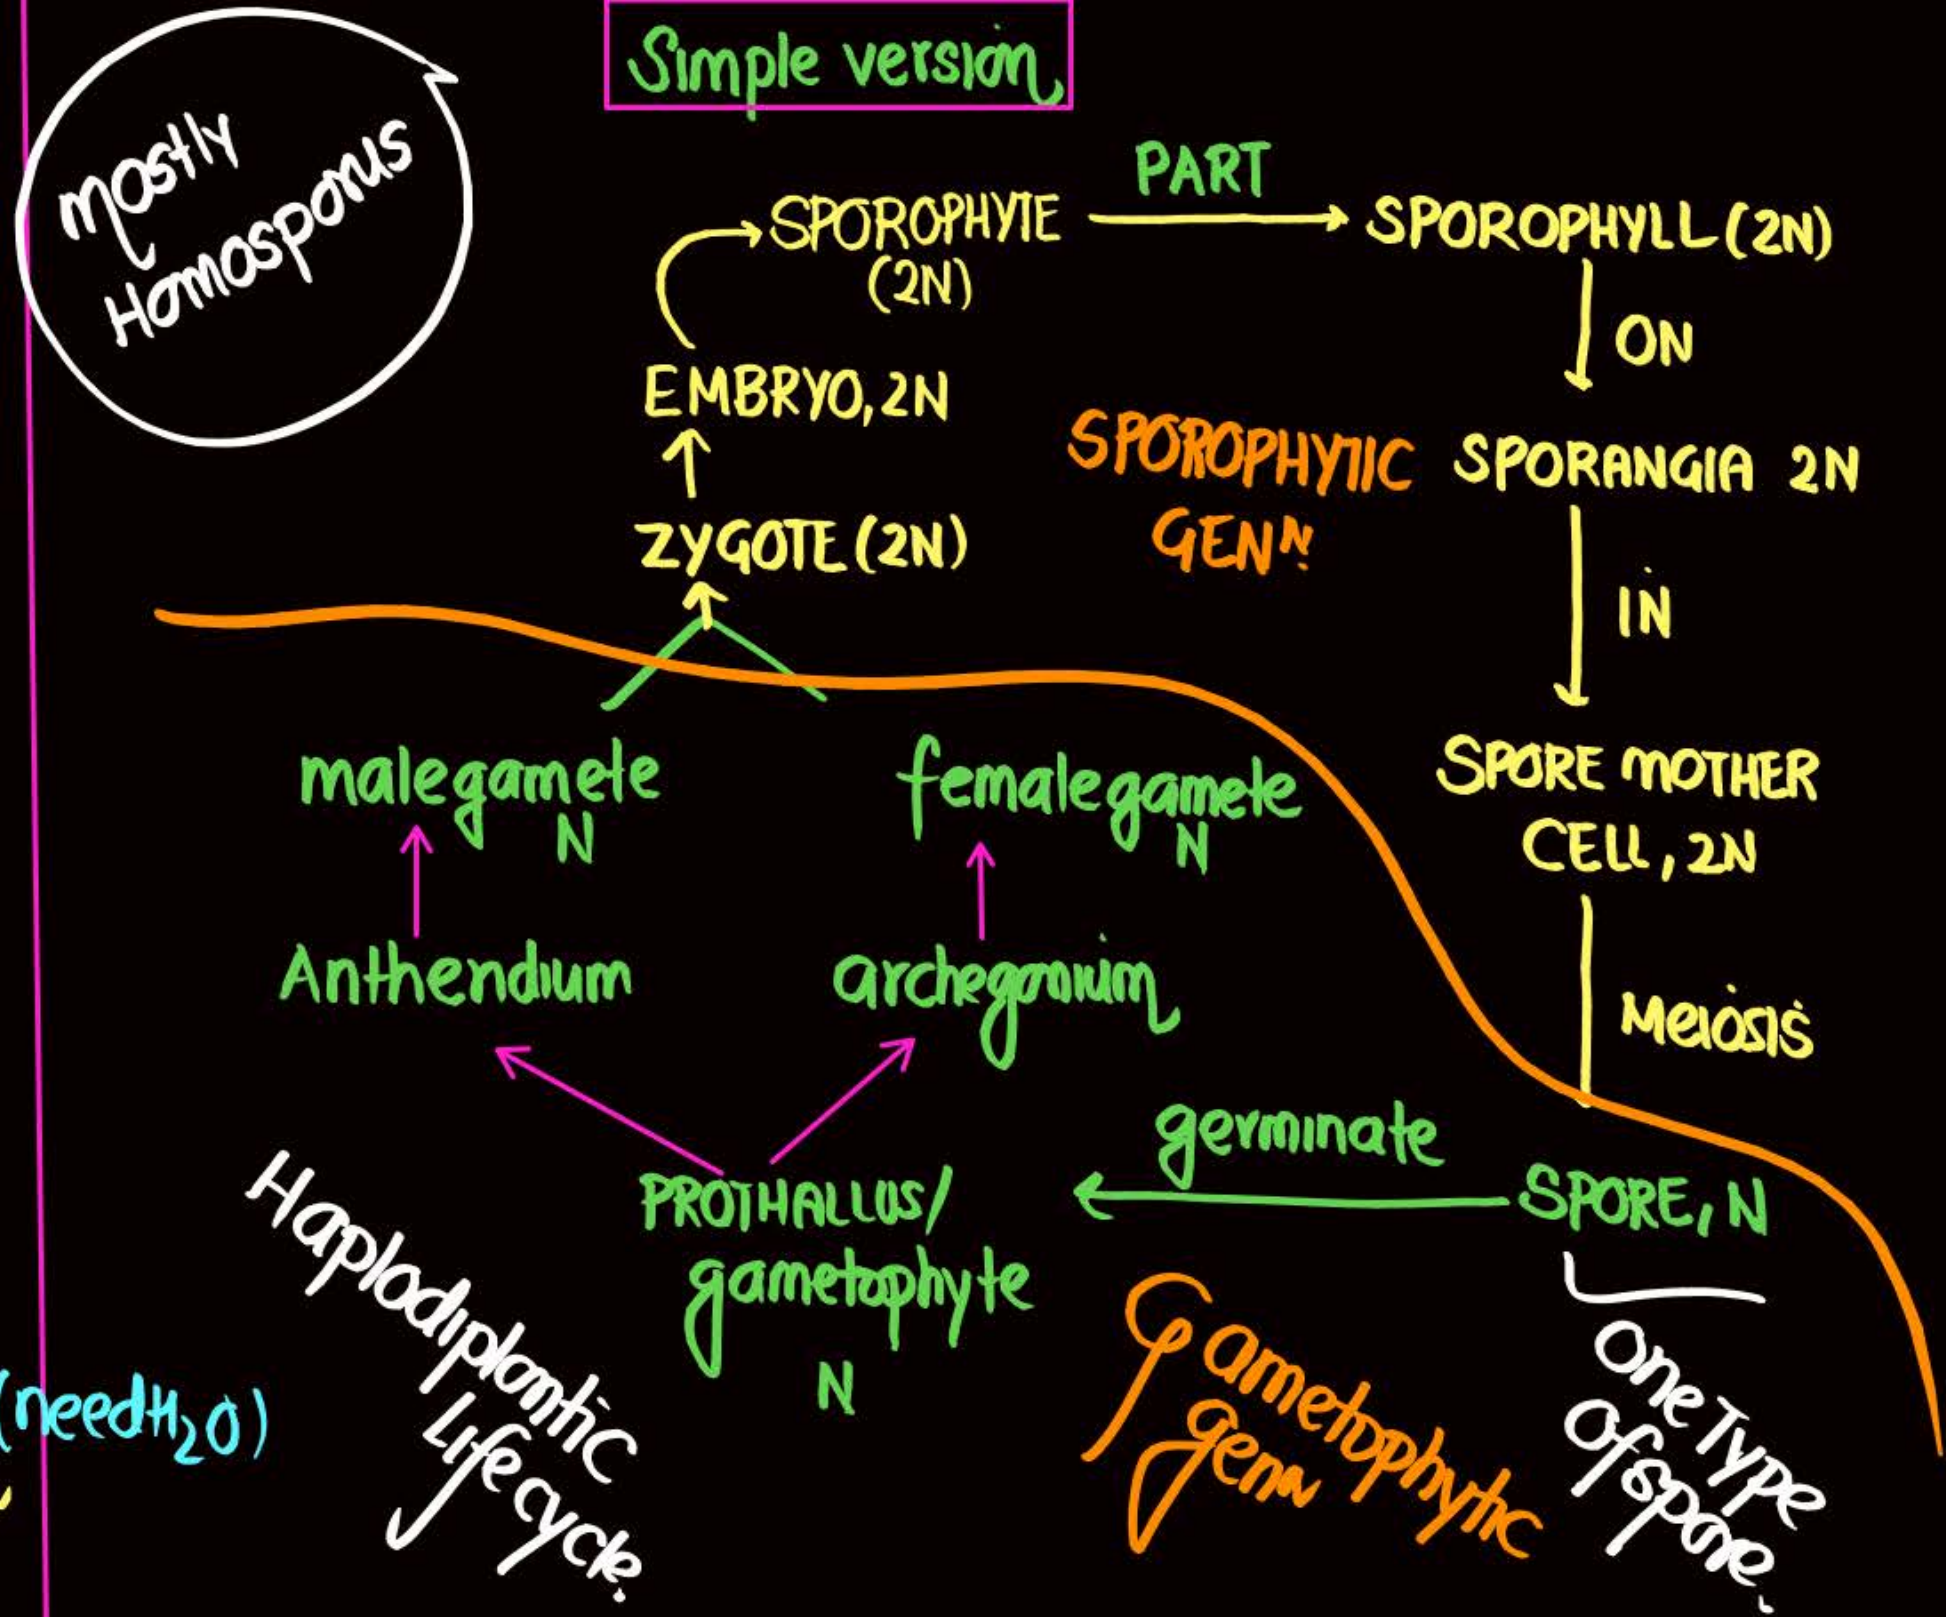 Simple version
mostly
Homosporus
PART
SPOROPHYTE
(2N)
SPOROPHYLL (2N)
ON
EMBRYO, 2N
SPOROPHYTIC
GENN
SPORANGIA 2N
ZYGOTE (2N)
IN
malegamete
N
femalegamete
N
SPORE MOTHER
CELL, 2N
Anthendium
archegonium
Meiosis
germinate
SPORE, N
PROTHALLUS/
gametophyte
N
Haplodiplontic
Lifecycle.
Gametophytic
genn
one Type
Of spore.
(need H₂O)